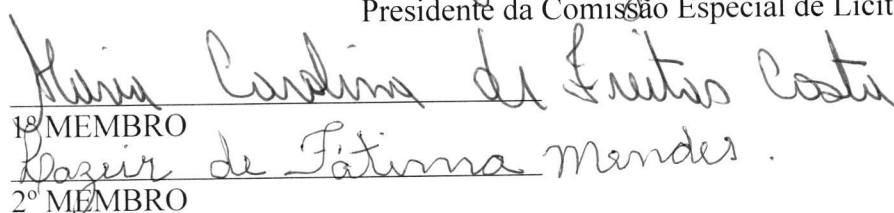 Presidente da Comissão Especial de Licit
Maria Carolina de Freitas Costa
1º MEMBRO
de Fátima Mendes.
2º MEMBRO